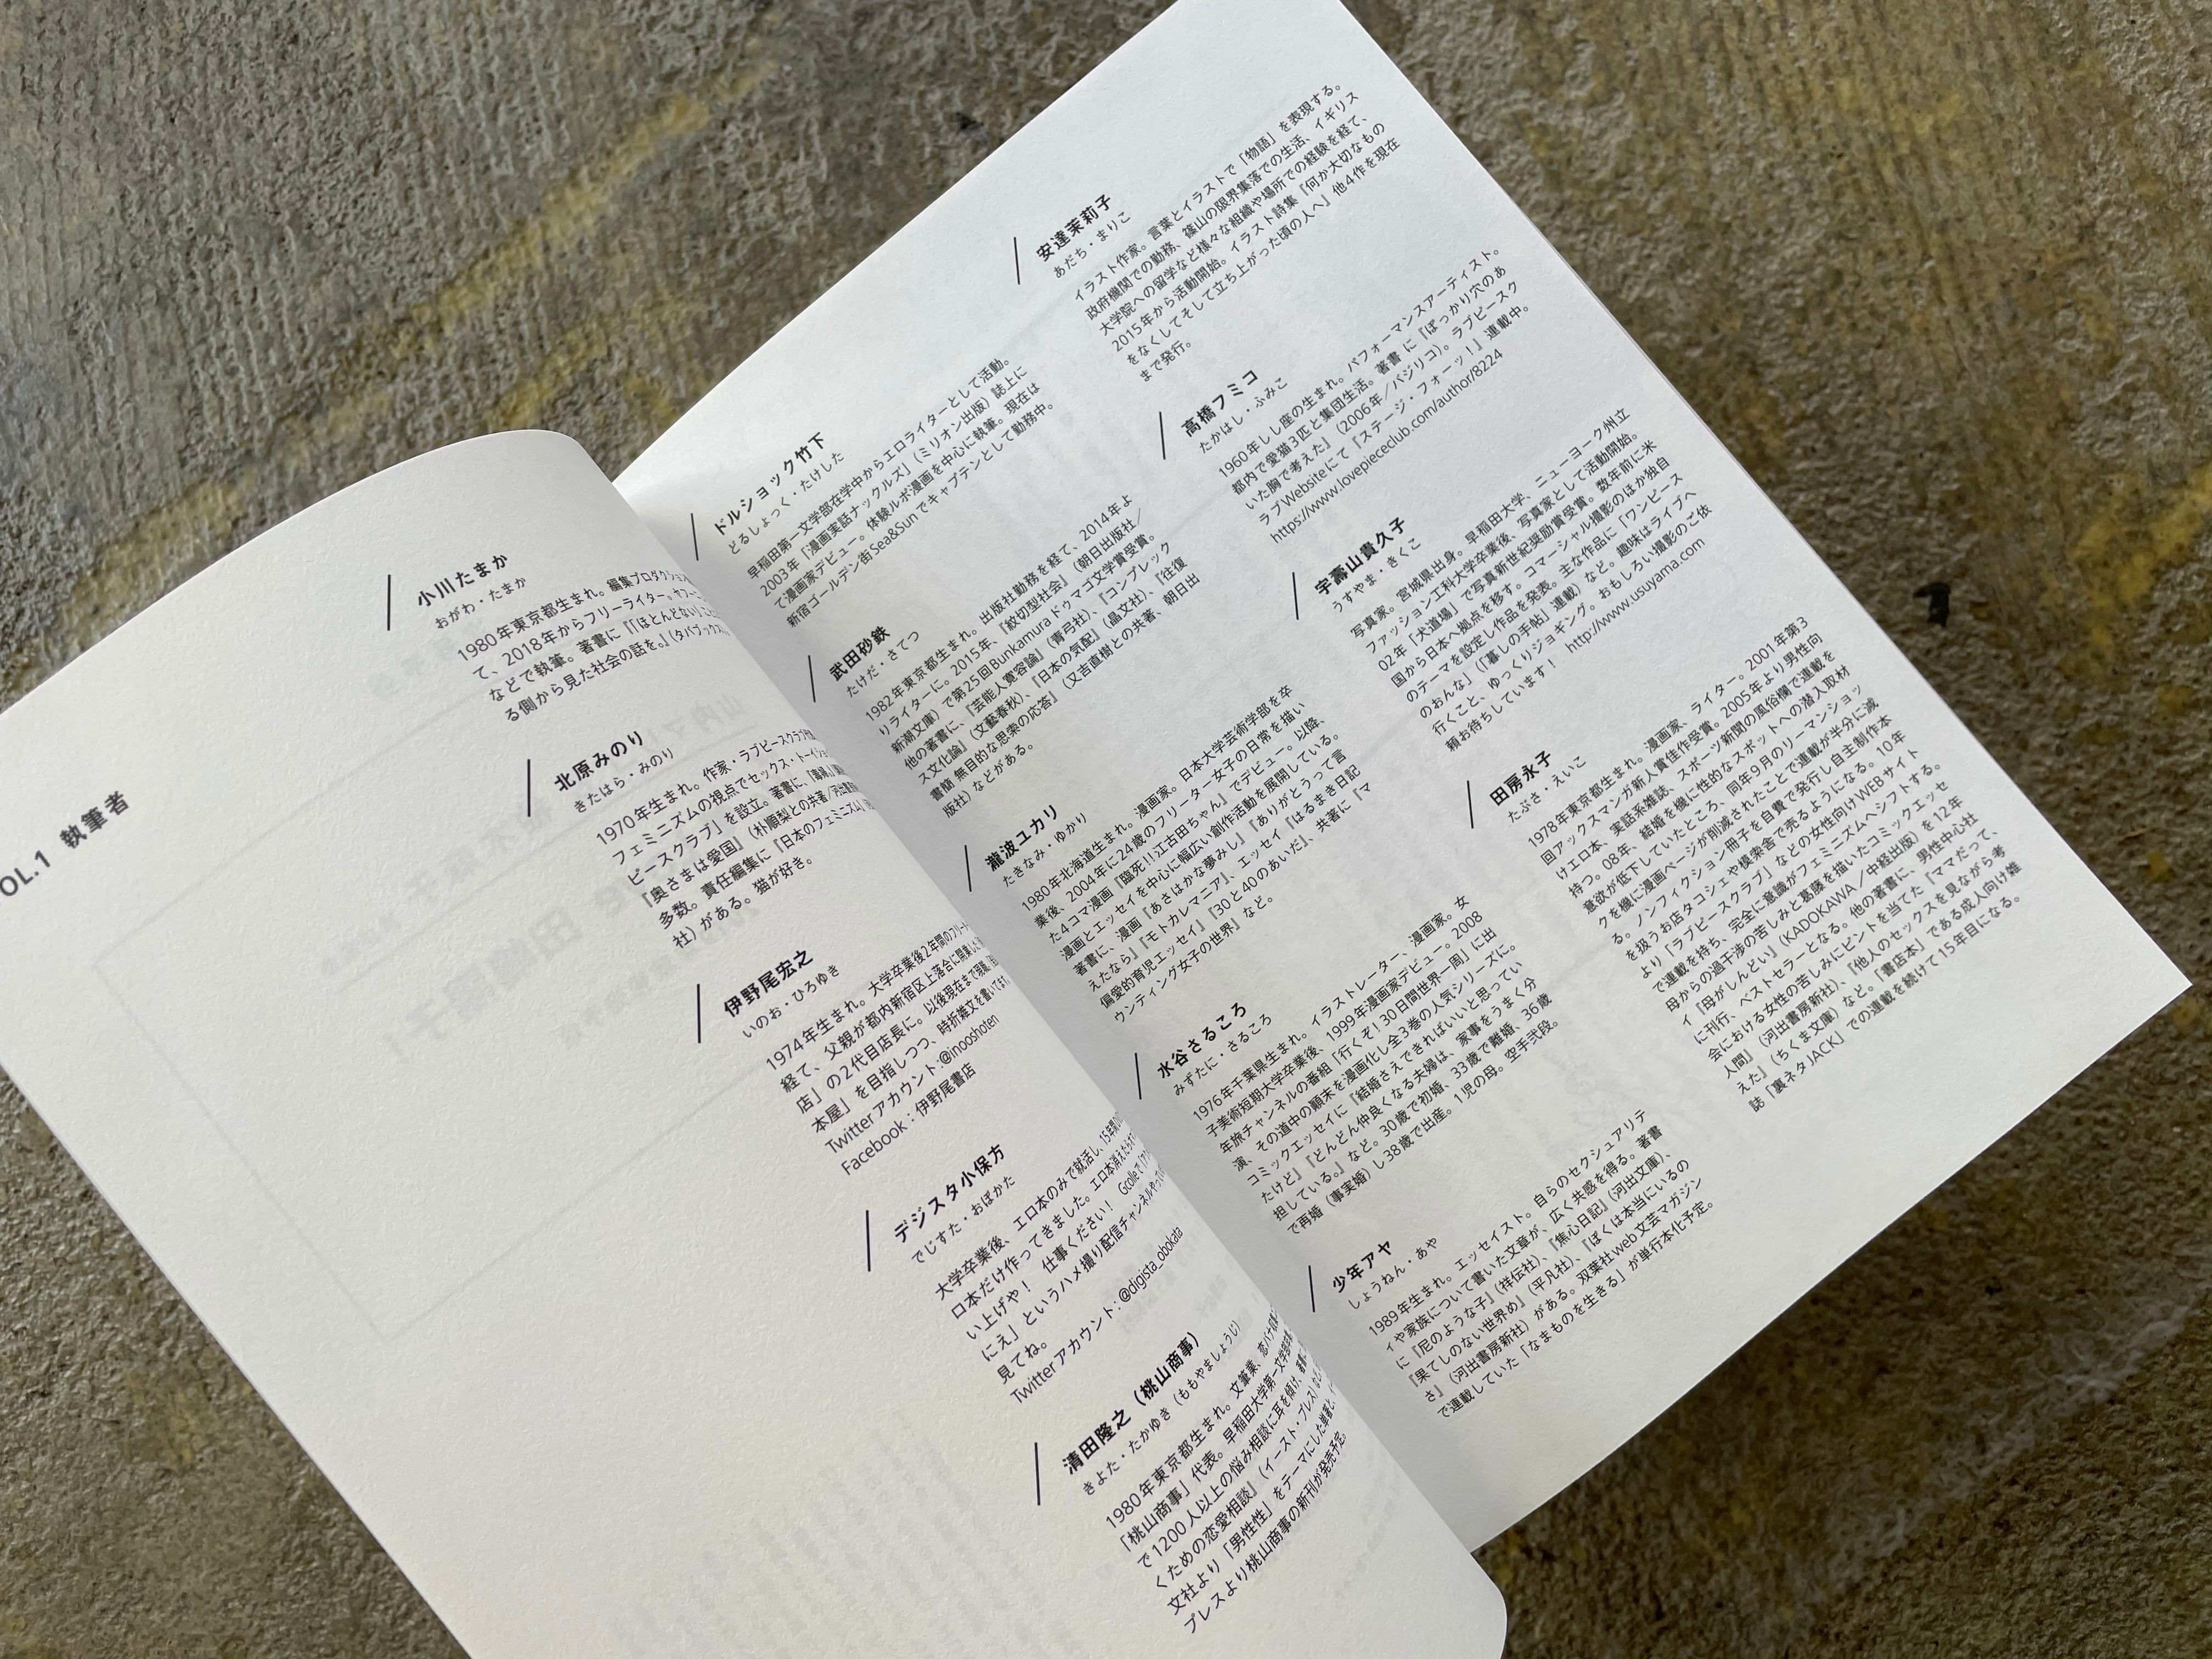 OL.1 執筆者
小川たまか
おがわ・たまか
1980年東京都生まれ。編集プロダクション
て、2018年からフリーライター。ヤフー
などで執筆。著書に『「ほとんどない」こと
る側から見た社会の話を。』(タバブックス)
北原みのり
きたはら・みのり
1970年生まれ。作家・ラブピースクラブ
フェミニズムの視点でセックス・トーイショ
ピースクラブ」を設立。著書に、『毒婦』
『奥さまは愛国』(朴順梨との共著/河出書房
多数。責任編集に『日本のフェミニズム』
社)がある。猫が好き。
伊野尾宏之
いのお・ひろゆき
1974年生まれ。大学卒業後2年間のフリー
経て、父親が都内新宿区上落合に開業した
店」の2代目店長に。以後現在まで現職。
本屋」を目指しつつ、時折雑文を書いてます
Twitterアカウント:@inooshoten
Facebook:伊野尾書店
デジスタ小保方
でじすた・おぼかた
大学卒業後、エロ本のみで就活し、15年間
ロ本だけ作ってきました。エロ本消えたら
い上げや! 仕事ください! Gcolleで
にえ」というハメ撮り配信チャンネルやって
見てね。
Twitterアカウント:@digista_obokata
清田隆之(桃山商事)
きよた・たかゆき(ももやましょうじ)
1980年東京都生まれ。文筆業、恋バナ収集
「桃山商事」代表。早稲田大学第一文学部
で1200人以上の悩み相談に耳を傾け、
くための恋愛相談』(イースト・プレス)
文社より「男性性」をテーマにした単著と、
プレスより桃山商事の新刊が発売予定。
ドルショック竹下
どるしょっく・たけした
早稲田第一文学部在学中からエロライターとして活動。
2003年「漫画実話ナックルズ」(ミリオン出版)誌上に
て漫画家デビュー。体験ルポ漫画を中心に執筆。現在は
新宿ゴールデン街Sea&Sunでキャプテンとして勤務中。
武田砂鉄
たけだ・さてつ
1982年東京都生まれ。出版社勤務を経て、2014年よ
りライターに。2015年、『紋切型社会』(朝日出版社/
新潮文庫)で第25回Bunkamuraドゥマゴ文学賞受賞。
他の著書に、『芸能人寛容論』(青弓社)、『コンプレック
ス文化論』(文藝春秋)、『日本の気配』(晶文社)、『往復
書簡 無目的な思索の応答』(又吉直樹との共著、朝日出
版社)などがある。
瀧波ユカリ
たきなみ・ゆかり
1980年北海道生まれ。漫画家。日本大学芸術学部を卒
業後、2004年に24歳のフリーター女子の日常を描い
た4コマ漫画『臨死!!江古田ちゃん』でデビュー。以降、
漫画とエッセイを中心に幅広い創作活動を展開している。
著書に、漫画『あさはかな夢みし』『ありがとうって言
えたなら』『モトカレマニア』、エッセイ『はるまき日記
偏愛的育児エッセイ』『30と40のあいだ』、共著に『マ
ウンティング女子の世界』など。
水谷さるころ
みずたに・さるころ
1976年千葉県生まれ。イラストレーター、漫画家。女
子美術短期大学卒業後、1999年漫画家デビュー。2008
年旅チャンネルの番組「行くぞ!30日間世界一周」に出
演、その道中の顛末を漫画化し全3巻の人気シリーズに。
コミックエッセイに『結婚さえできればいいと思ってい
たけど』『どんどん仲良くなる夫婦は、家事をうまく分
担している。』など。30歳で初婚、33歳で離婚、36歳
で再婚(事実婚)し38歳で出産。1児の母。空手弐段。
少年アヤ
しょうねん・あや
1989年生まれ。エッセイスト。自らのセクシュアリテ
ィや家族について書いた文章が、広く共感を得る。著書
に『尼のような子』(祥伝社)、『焦心日記』(河出文庫)、
『果てしのない世界め』(平凡社)、『ぼくは本当にいるの
さ』(河出書房新社)がある。双葉社web文芸マガジン
で連載していた「なまものを生きる」が単行本化予定。
安達茉莉子
あだち・まりこ
イラスト作家。言葉とイラストで「物語」を表現する。
政府機関での勤務、篠山の限界集落での生活、イギリス
大学院への留学など様々な組織や場所での経験を経て、
2015年から活動開始。イラスト詩集『何か大切なもの
をなくしてそして立ち上がった頃の人へ』他4作を現在
まで発行。
高橋フミコ
たかはし・ふみこ
1960年しし座の生まれ。パフォーマンスアーティスト。
都内で愛猫3匹と集団生活。著書に『ぽっかり穴のぁ
いた胸で考えた』(2006年/バジリコ)。ラブピースク
ラブWebsiteにて『ステージ・フォーッ!』連載中。
https://www.lovepiececlub.com/author/8224
宇壽山貴久子
うすやま・きくこ
写真家。宮城県出身。早稲田大学、ニューヨーク州立
ファッション工科大学卒業後、写真家として活動開始。
02年「犬道場」で写真新世紀奨励賞受賞。数年前に米
国から日本へ拠点を移す。コマーシャル撮影のほか独自
のテーマを設定し作品を発表。主な作品に「ワンピース
のおんな」(「暮しの手帖」連載)など。趣味はライブへ
行くこと、ゆっくりジョギング。おもしろい撮影のご依
頼お待ちしています! http://www.usuyama.com
田房永子
たぶさ・えいこ
1978年東京都生まれ。漫画家、ライター。2001年第3
回アックスマンガ新人賞佳作受賞。2005年より男性向
けエロ本、実話系雑誌、スポーツ新聞の風俗欄で連載を
持つ。08年、結婚を機に性的なスポットへの潜入取材
意欲が低下していたところ、同年9月のリーマンショッ
クを機に漫画ページが削減されたことで連載が半分に減
る。ノンフィクション冊子を自費で発行し自主制作本
を扱うお店タコシェや模索舎で売るようになる。10年
より「ラブピースクラブ」などの女性向けWEBサイト
で連載を持ち、完全に意識がフェミニズムへシフトする。
母からの過干渉の苦しみと葛藤を描いたコミックエッセ
イ『母がしんどい』(KADOKAWA/中経出版)を12年
に刊行、ベストセラーとなる。他の著書に、男性中心社
会における女性の苦しみにピントを当てた『ママだって、
人間』(河出書房新社)、『他人のセックスを見ながら考
えた』(ちくま文庫)など。「書店本」である成人向け雑
誌「裏ネタJACK」での連載を続けて15年目になる。